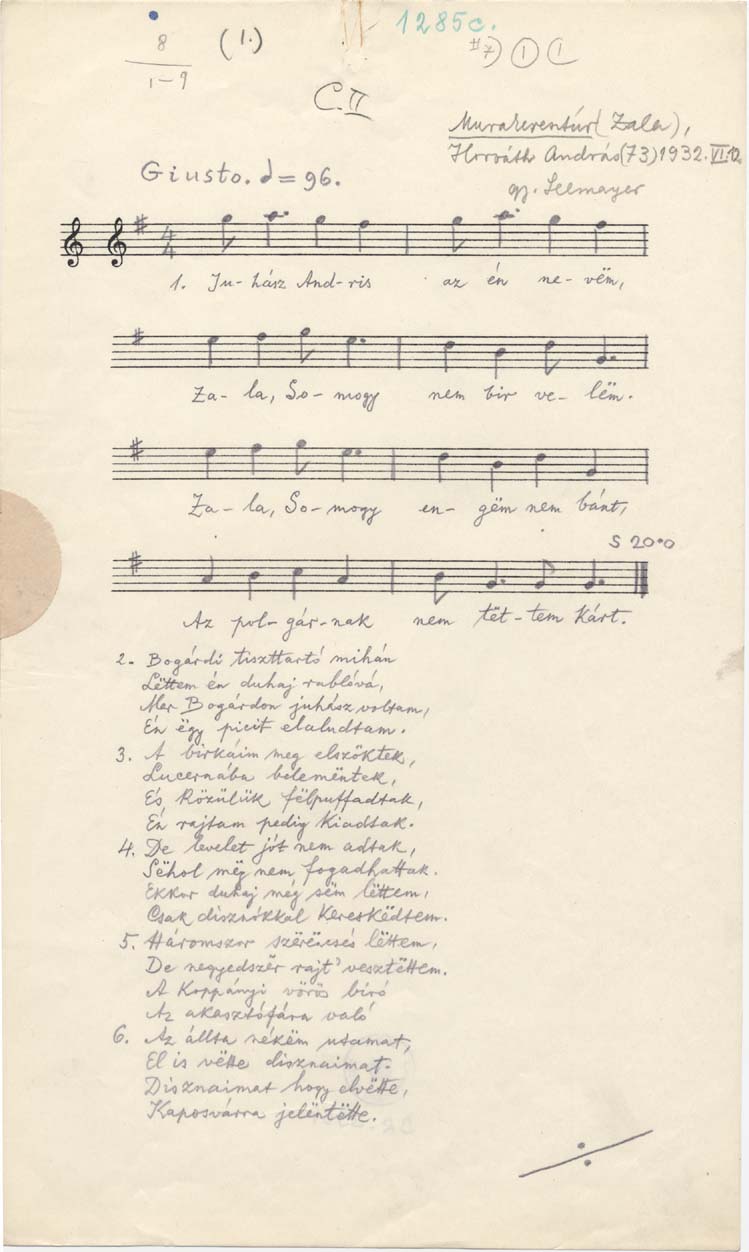 1285c.
8 (1.) #7) 1 1
1-9
C.II
Murakeresztúr (Zala),
Horváth András (73) 1932. VI. 12.
gy. Seemayer
Giusto. = 96.
4
4
1. Ju- hász And- ris az én ne- vëm,
Za- la, So- mogy nem bir ve- lëm.
Za- la, So- mogy en- gëm nem bánt,
S 20·0
Az pol- gár- nak nem tët- tem kárt.
2. Bogárdi tiszttartó mihán
Lëttem én duhaj rablóvá,
Mer Bogárdon juhász voltam,
Én ëgy picit elaludtam.
3. A birkáim meg elszöktek,
Lucernába belemëntek,
És közülük fëlpuffadtak,
Én rajtam pedig kiadtak.
4. De levelet jót nem adtak,
Sëhol mëg nem fogadhattak.
Ekkor duhaj még sëm lëttem,
Csak disznókkal kereskëdtem.
5. Háromszor szërëncsés lëttem,
De negyedszër rajt' vesztëttem.
A Koppányi vörös bíró
Az akasztófára való
6. Az állta nékëm utamat,
El is vëtte disznaimat.
Disznaimat hogy elvëtte,
Kaposvárra jelëntëtte.